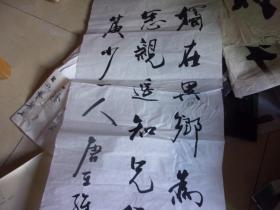 獨在異鄉為
思親遥知兄
萸少一人 唐王維